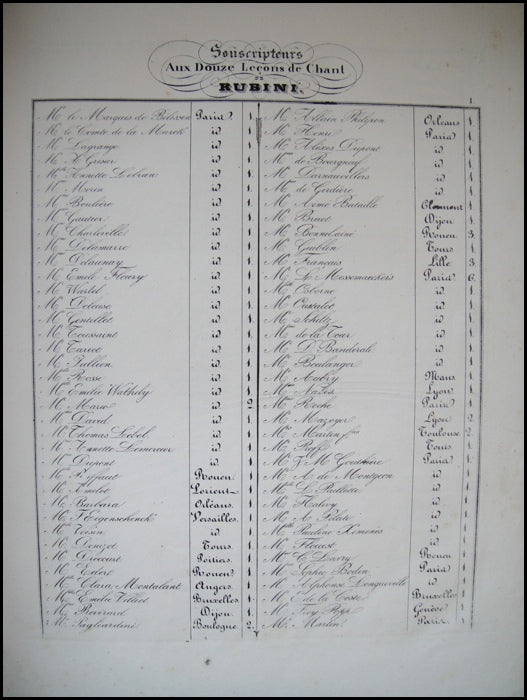 Souscripteurs
Aux Douze Leçons de Chant
DE
RUBINI.
1.
Mr le Marquis de Paris. 1.
Mr le Comte de la Marck id 1.
Mr Lagrange id 1.
Mr Grisar id 1.
Mlle Annette Lebrun id 1.
Mr Morin id 1.
Mr id 1.
Mr Gautier id 1.
Mr Charleville id 1.
Mr Delamarre id 1.
Mr Delaunay id 1.
Mr Emile Fleury id 1.
Mr Wartel id 1.
Mr Deleuse id 1.
Mr Gentillet id 1.
Mr Toussaint id 1.
Mr Tariot id 1.
Mr Jullien id 1.
Mr Rosse id 1.
Mme Emelie id 1.
Mr Mario id 2.
Mr David id 1.
Mr Thomas Lebel id 1.
Mlle Annette Lemercier id 1.
Mr Dupont id 1.
Mr Rouen 1.
Mr Amelot Lorient 1.
Mr Barbara Orléans. 1.
Mr F. Eigenschenck Versailles. 1.
Mr Voisin id 1.
Mr Douzet Tours. 1.
Mr Diocourt Poitiers. 1.
Mr Edert Rouen 1.
Mlle Clara Montalant Angers. 1.
Mme Emilie Bruxelles 1.
Mr Dijon 1.
Mr Pagliardini Boulogne 2.
Mr Allain Orléans 1.
Mr Paris 1.
Mr Alexis Dupont id 1.
Mr de Bourgnay id 1.
Mr Darnauvillers id 1.
Mr de Gerdière id 1.
Mr Aimé Bataille Clermont 1.
Mr Bruet Dijon 1.
Mr Bonnelainé Rouen 3.
Mr Gublin Tours 1.
Mr Français Lille 3.
Mr Messemaeckers Paris 6.
Mr Osborne id 1.
Mr id 1.
Mr Schiltz id 1.
Mr de la Tour id 1.
Mr D. Bandérali id 1.
Mr Boulanger id 1.
Mr Aubry Mans. 1.
Mr Lyon 1.
Mr Roche Paris 1.
Mr Mazoyer Lyon 2.
Mr Martin fils Toulouse 2.
Mr Raff Tours. 1.
Mr J. M. Gouthière Paris 1.
Mr A. de Montgeon id 1.
Mr id 1.
Mr Halévy id 1.
Mr A. id 1.
Mlle Pauline Ximenès id 1.
Mr Flouest id 1.
Mr Rouen 1.
Mlle Sophie Bodin Paris 1.
Mr Alphonse id 1.
Mr E. de la Coste Bruxelles 1.
Mr Genêve 1.
Mr Martin Paris 1.